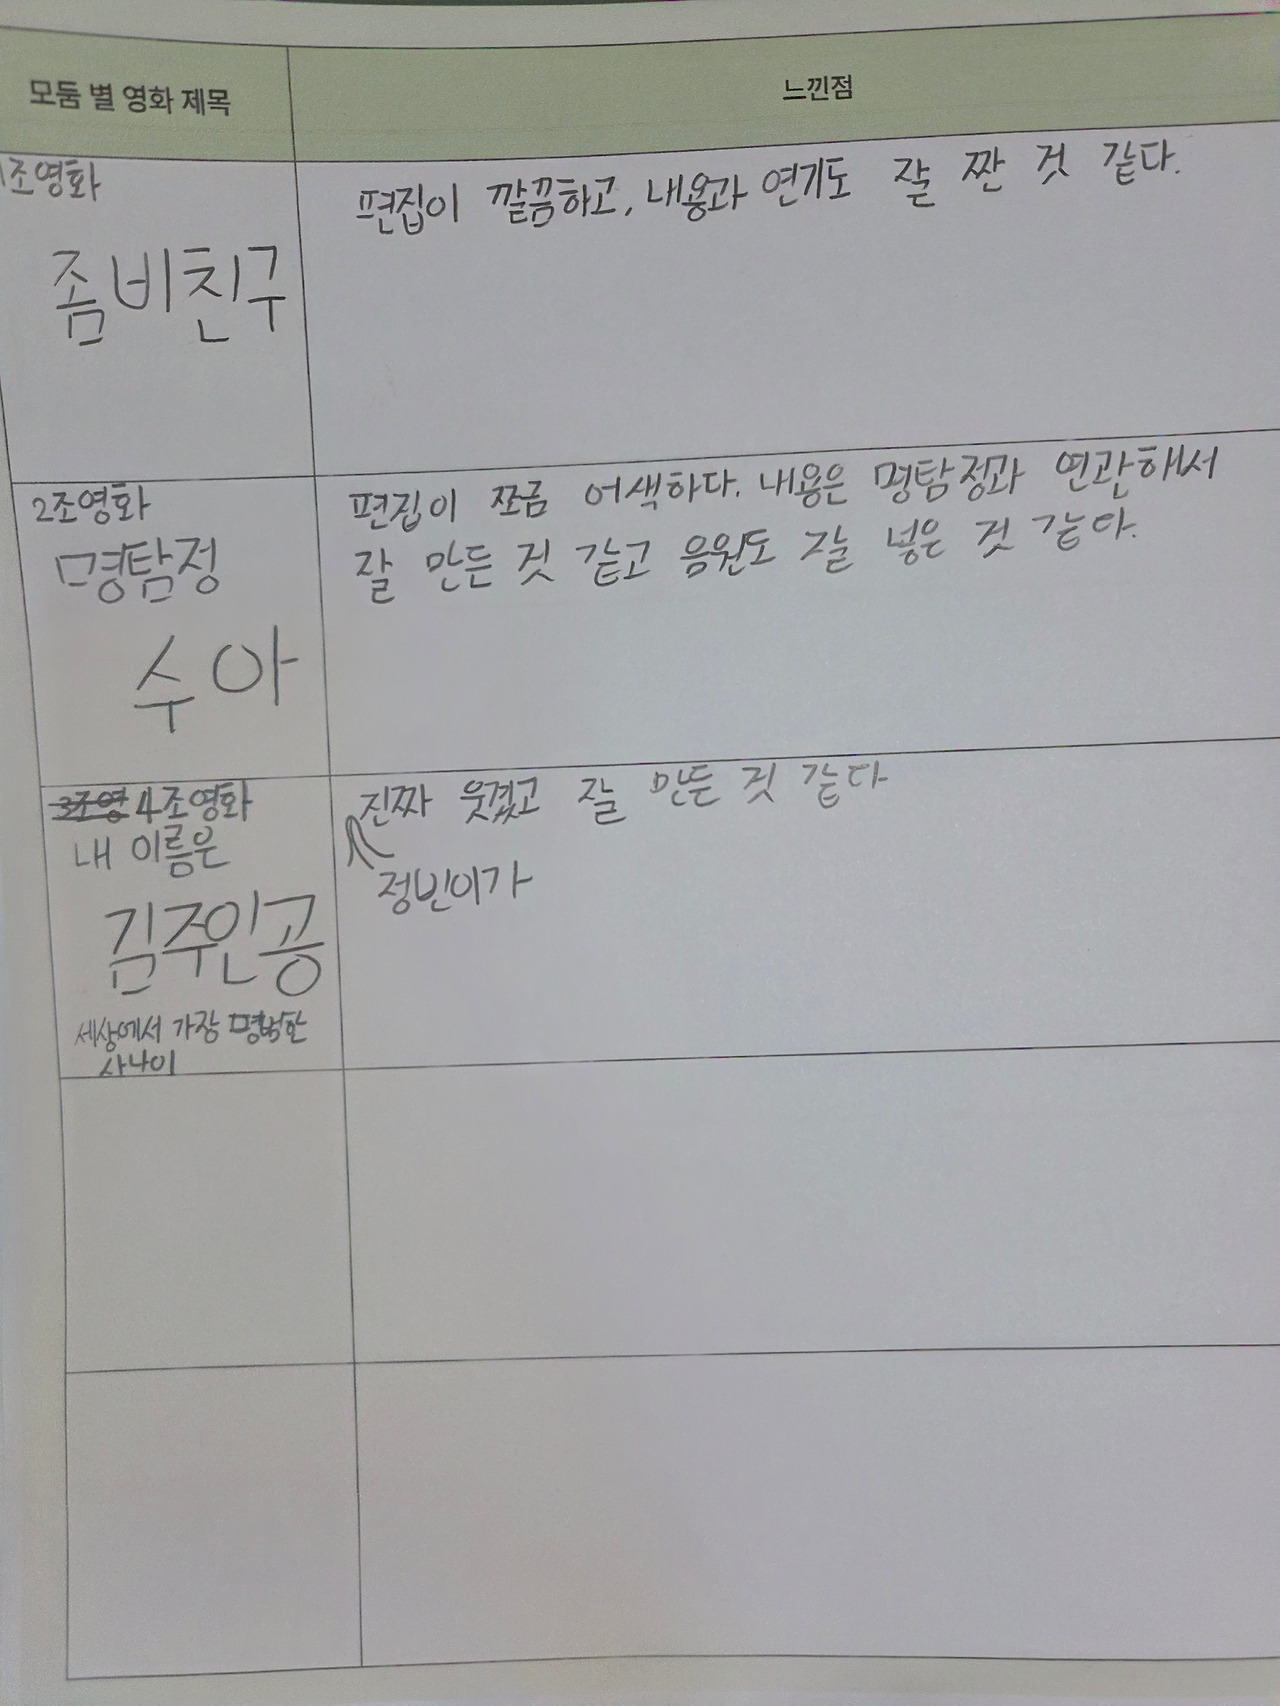 모둠 별 영화 제목
느낀점
1조영화
좀비친구
편집이 깔끔하고, 내용과 연기도 잘 짠 것 같다.
2조영화
명탐정
수아
편집이 쪼금 어색하다. 내용은 명탐정과 연관해서
잘 만든 것 같고 음원도 잘 넣은 것 같다.
3조영 4조영화
내 이름은
김주인공
세상에서 가장 명백한
사나이
진짜 웃겼고 잘 만든 것 같다
정빈이가